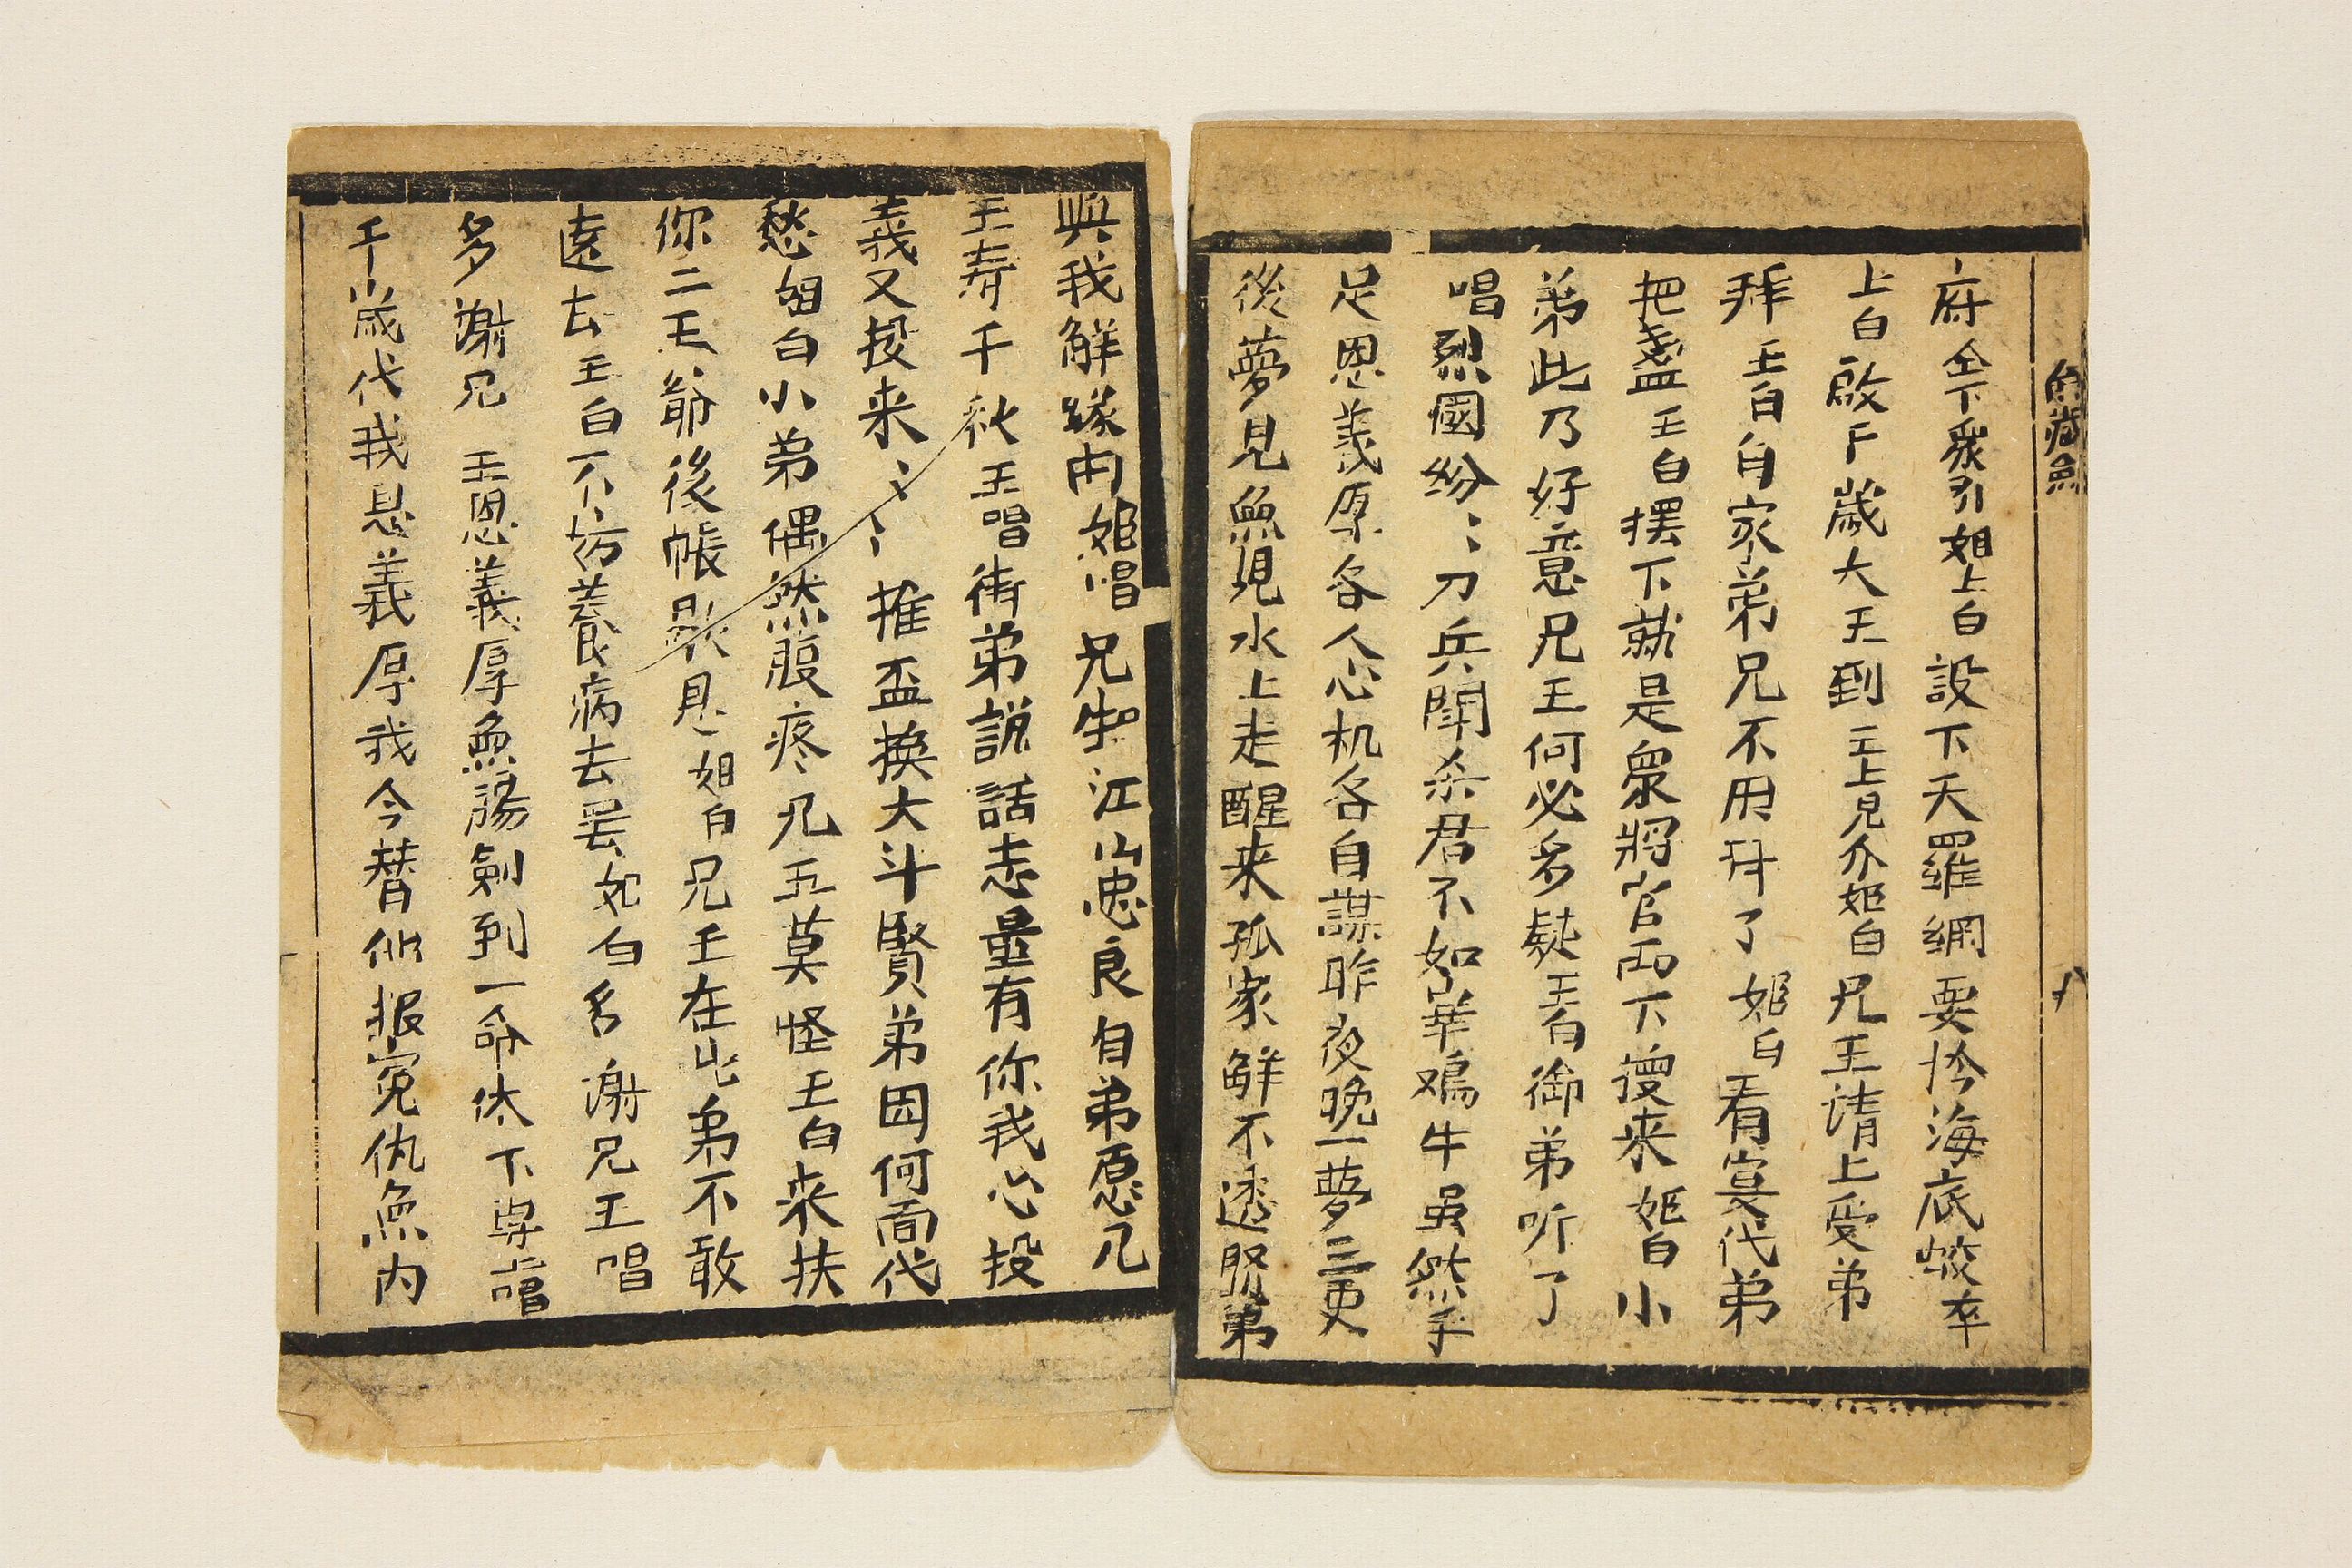 魚藏劍
八
府仝下衆引姫上白設下天羅網要拎海底蛟卒
上白啟千歲大王到王上見介姫白兄王請上受弟
拜王白自家弟兄不用拜了姫白看宴代弟
把盞王白擺下就是衆將官両下摟来姫白小
弟此乃好意兄王何必多疑王白御弟听了
唱烈國紛〻刀兵鬧杀君不如宰鳮牛虽然手
足恩義厚各人心机各自謀昨夜晚一夢三更
後夢見魚現水上走醒来孤家觧不透賢弟
與我觧緣由姫唱兄坐江山忠良自弟愿兄
王寿千秋王唱御弟說話志量有你我心投
義又投来〻〻推盃換大斗賢弟因何面代
愁姫白小弟偶然腹疼兄王莫怪王白来扶
你二王爺後帳歇息姫白兄王在此弟不敢
遠去王白不妨養病去罢姫白多謝兄王唱
多謝兄王恩義厚魚腸劍到一命休下専上唱
千歲代我恩義厚我今替他报寃仇魚内